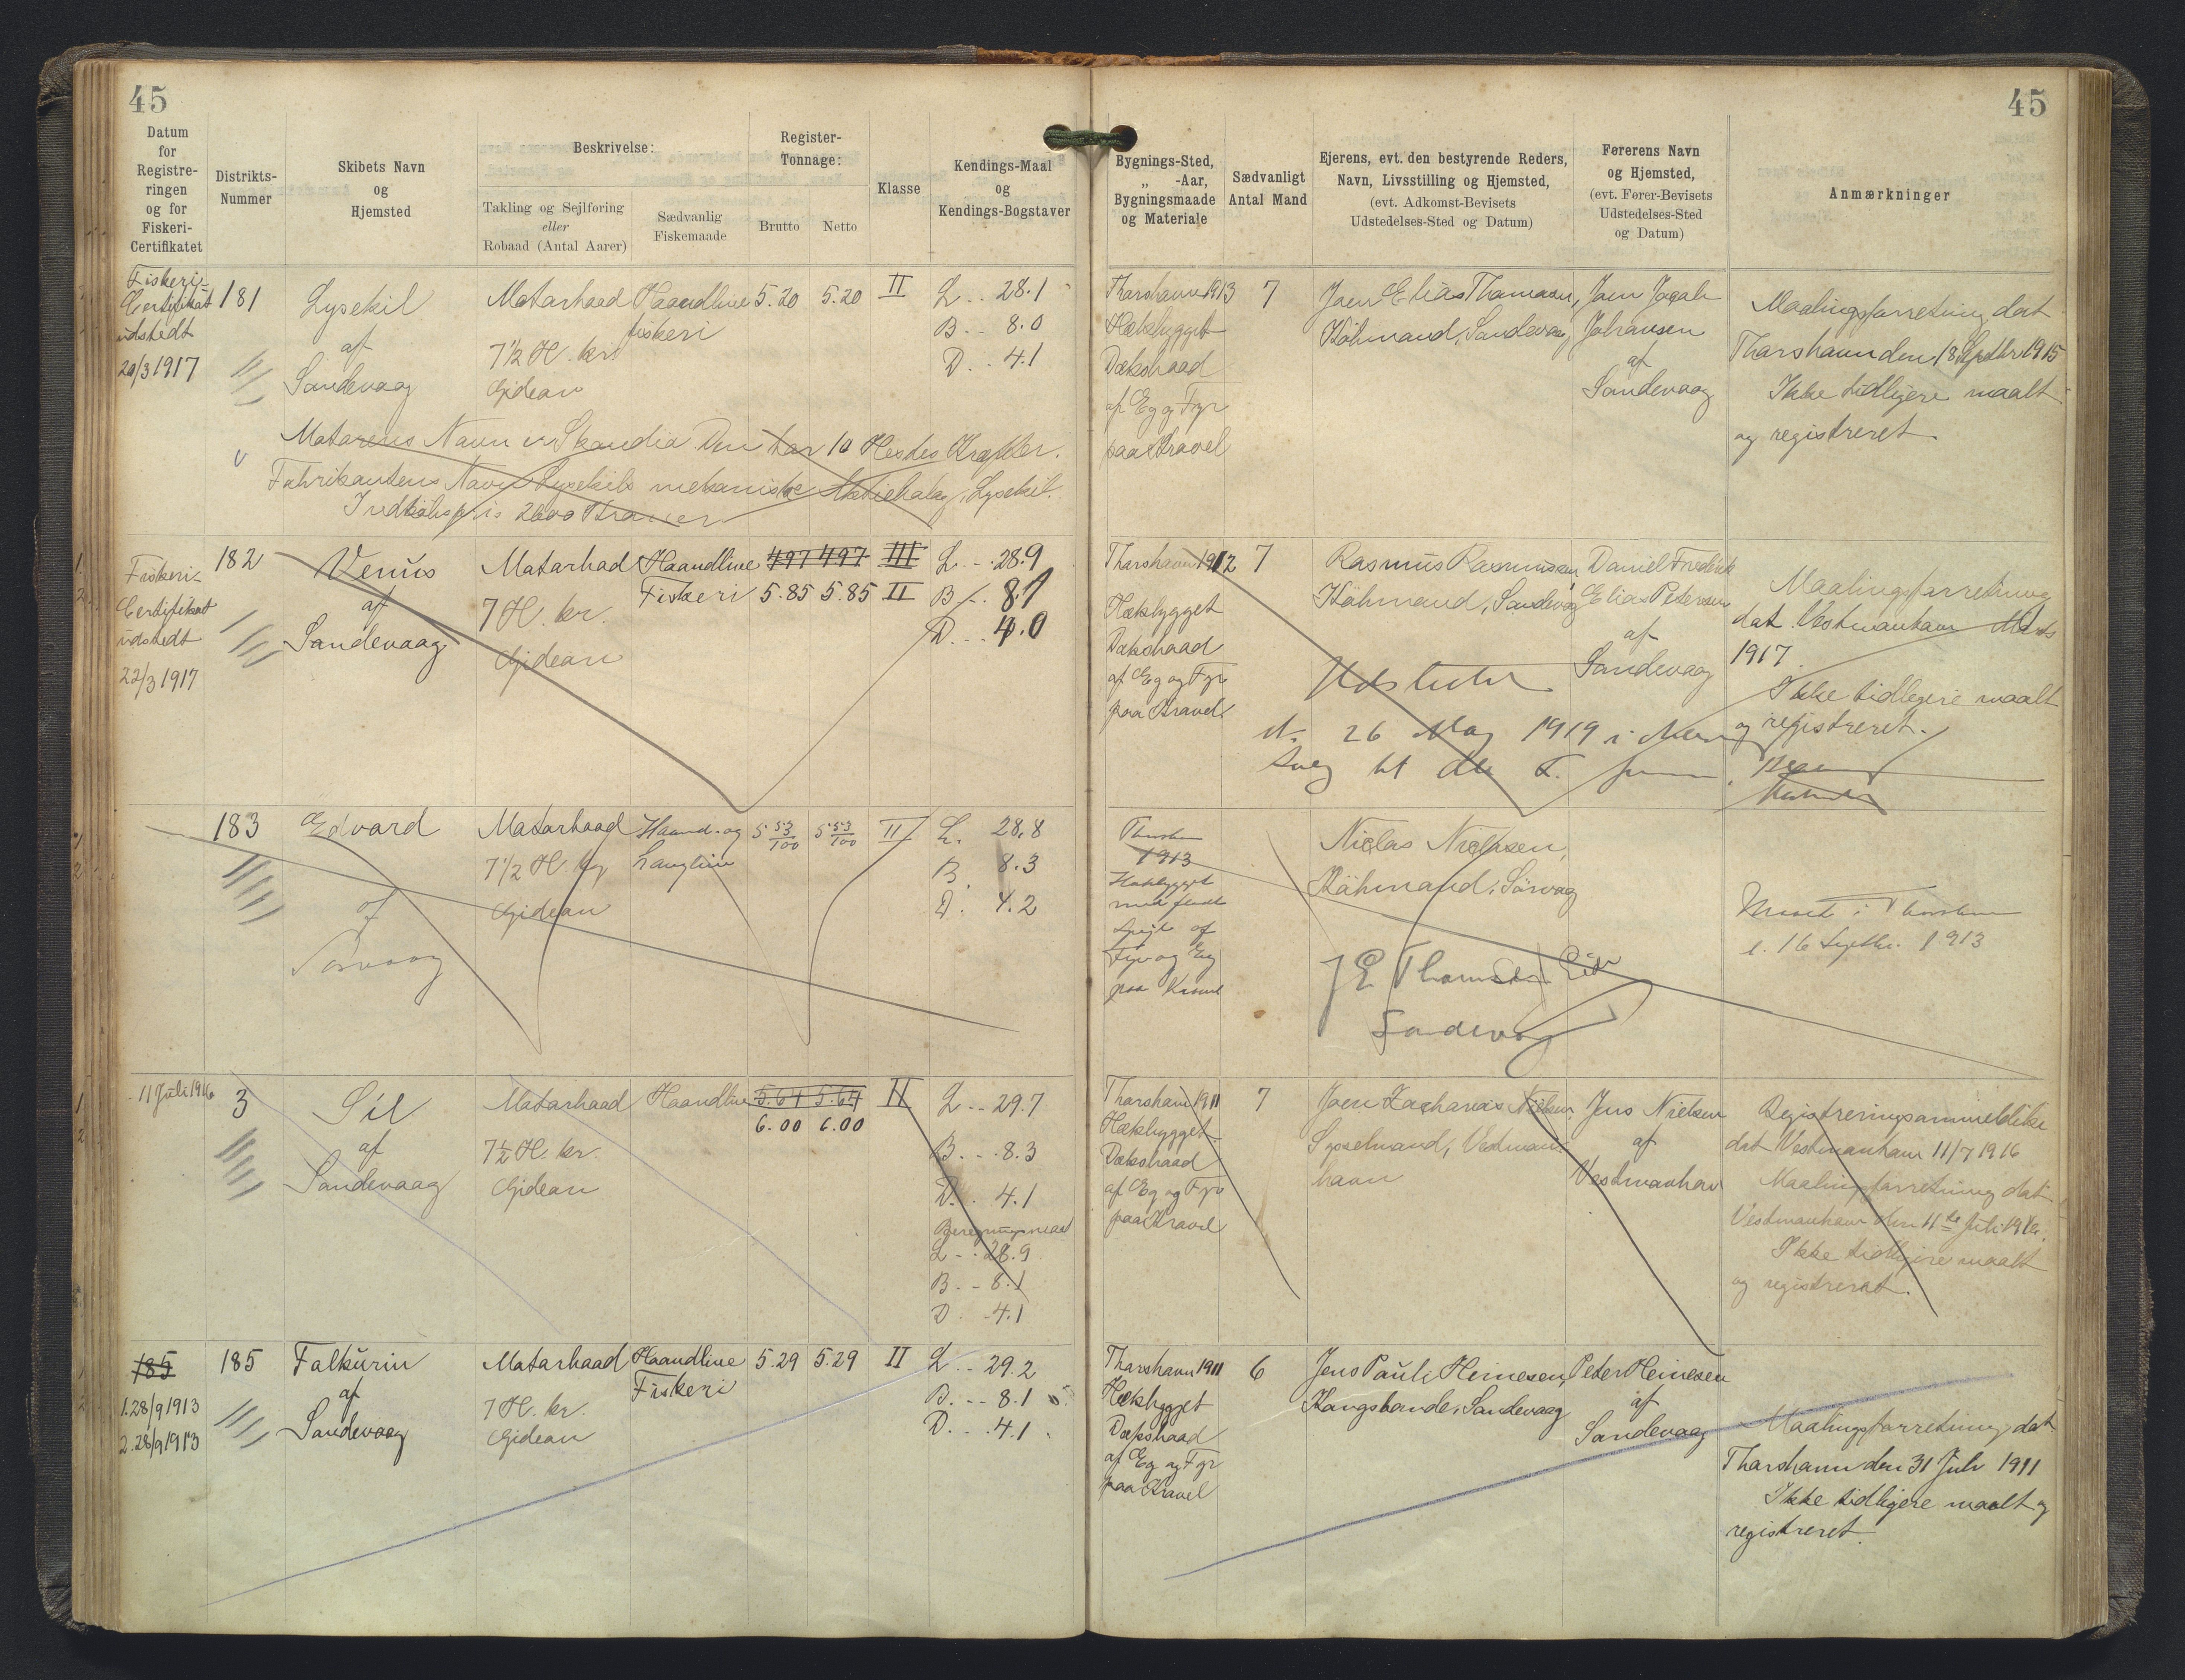 45
45
Datum
for
Registre-
ringen
og for
Fiskeri-
Certifikatet
Distrikts-
Nummer
Skibets Navn
og
Hjemsted
Beskrivelse:
Takling og Sejlføring
eller
Robaad (Antal Aarer)
Sædvanlig
Fiskemaade
Register-
Tonnage:
Brutto
Netto
Klasse
Kendings-Maal
og
Kendings-Bogstaver
Bygnings-Sted,
„ -Aar,
Bygningsmaade
og Materiale
Sædvanligt
Antal Mand
Ejerens, evt. den bestyrende Reders,
Navn, Livsstilling og Hjemsted,
(evt. Adkomst-Bevisets
Udstedelses-Sted og Datum)
Førerens Navn
og Hjemsted,
(evt. Fører-Bevisets
Udstedelses-Sted
og Datum)
Anmærkninger
Fiskeri-
Certifikat
udstedt
20/3 1917
181
Lysekil
af
Sandevaag
Motorbaad
7 1/2 H. kr.
Gideon
Haandline
fiskeri
5.20 5.20
II
L. . 28.1
B. - 8.0
D. . 4.1
Motorens Navn er Skandia Den har 10 Hestes Kræfter.
Fabrikantens Navn Lysekils mekaniske Lysekil.
Indkøbspris 2600 Kroner
Thorshavn 1913
Hækbygget
Dæksbaad
af Eg og Fyr
paa Kravel
7
Joen Elias Thomasen,
Købmand, Sandevaag
Joen Jacob
Johansen
af
Sandevaag
Maalingsforretning dat
Thorshavn den 18 Septbr 1915
Ikke tidligere maalt
og registreret.
Fiskeri-
Certifikat
udstedt
22/3 1917
182
Venus
af
Sandevaag
Motorbaad
7 H. kr.
Gideon
Haandline
Fiskeri
4.97 4.97
5.85 5.85
III
II
L. - . 28.9
B. . 8.1
D. . . 4.0
Thorshavn 1912
Hækbygget
Dæksbaad
af Eg og Fyr
paa Kravel
7
Rasmus Rasmussen,
Købmand, Sandevaag
Daniel Fredrik
Elias Petersen
af
Sandevaag
Maalingsforretning
dat. Vestmanhavn Marts
1917.
Ikke tidligere maalt
og registreret.
Udslettet
26 Maj 1919 i
183
Edvard
af
Sørvaag
Motorbaad
7 1/2 H. kr
Gideon
Haand- og
Langline
5 53/100
5 53/100
II
L. 28.8
B. 8.3
D. 4.2
Thorshavn
1913
Hækbygget
med fladt
Spejl af
Fyr og Eg
paa Kravel
Niclas Niclasen,
Købmand, Sørvaag
J E Thomsen
Sandevaag
Maalt i Thorshavn
d. 16 Septbr. 1913
11 Juli 1916
3
Sil
af
Sandevaag
Motorbaad
7 1/2 H. kr.
Gideon
Haandline
5.64 5.64
6.00 6.00
II
L - - 29.7
B. - . 8.3
D. . 4.1
Beregningsmaal
L - . 28.9
B. - 8.1
D . 4.1
Thorshavn 1911
Hækbygget
Dæksbaad
af Eg og Fyr
paa Kravel
7
Joen Zacharias Nielsen,
Sysselmand, Vestman-
havn
Jens Nielsen
af
Vestmanhavn
Registreringsanmeldelse
dat Vestmanhavn 11/7 1916
Maalingsforretning dat.
Vestmanhavn den 11te Juli 1916.
Ikke tidligere maalt
og registreret.
185
1. 28/9 1913
2. 28/9 1913
185
Falkurin
af
Sandevaag
Motorbaad
7 H. kr.
Gideon
Haandline
Fiskeri
5.29 5.29
II
L . . 29.2
B. - - 8.1
D. . . 4.1
Thorshavn 1911
Hækbygget
Dæksbaad
af Eg og Fyr
paa Kravel
6
Jens Pauli Heinesen,
Kongsbonde, Sandevaag
Peter Heinesen
af
Sandevaag
Maalingsforretning dat
Thorshavn den 31 Juli 1911
Ikke tidligere maalt og
registreret.